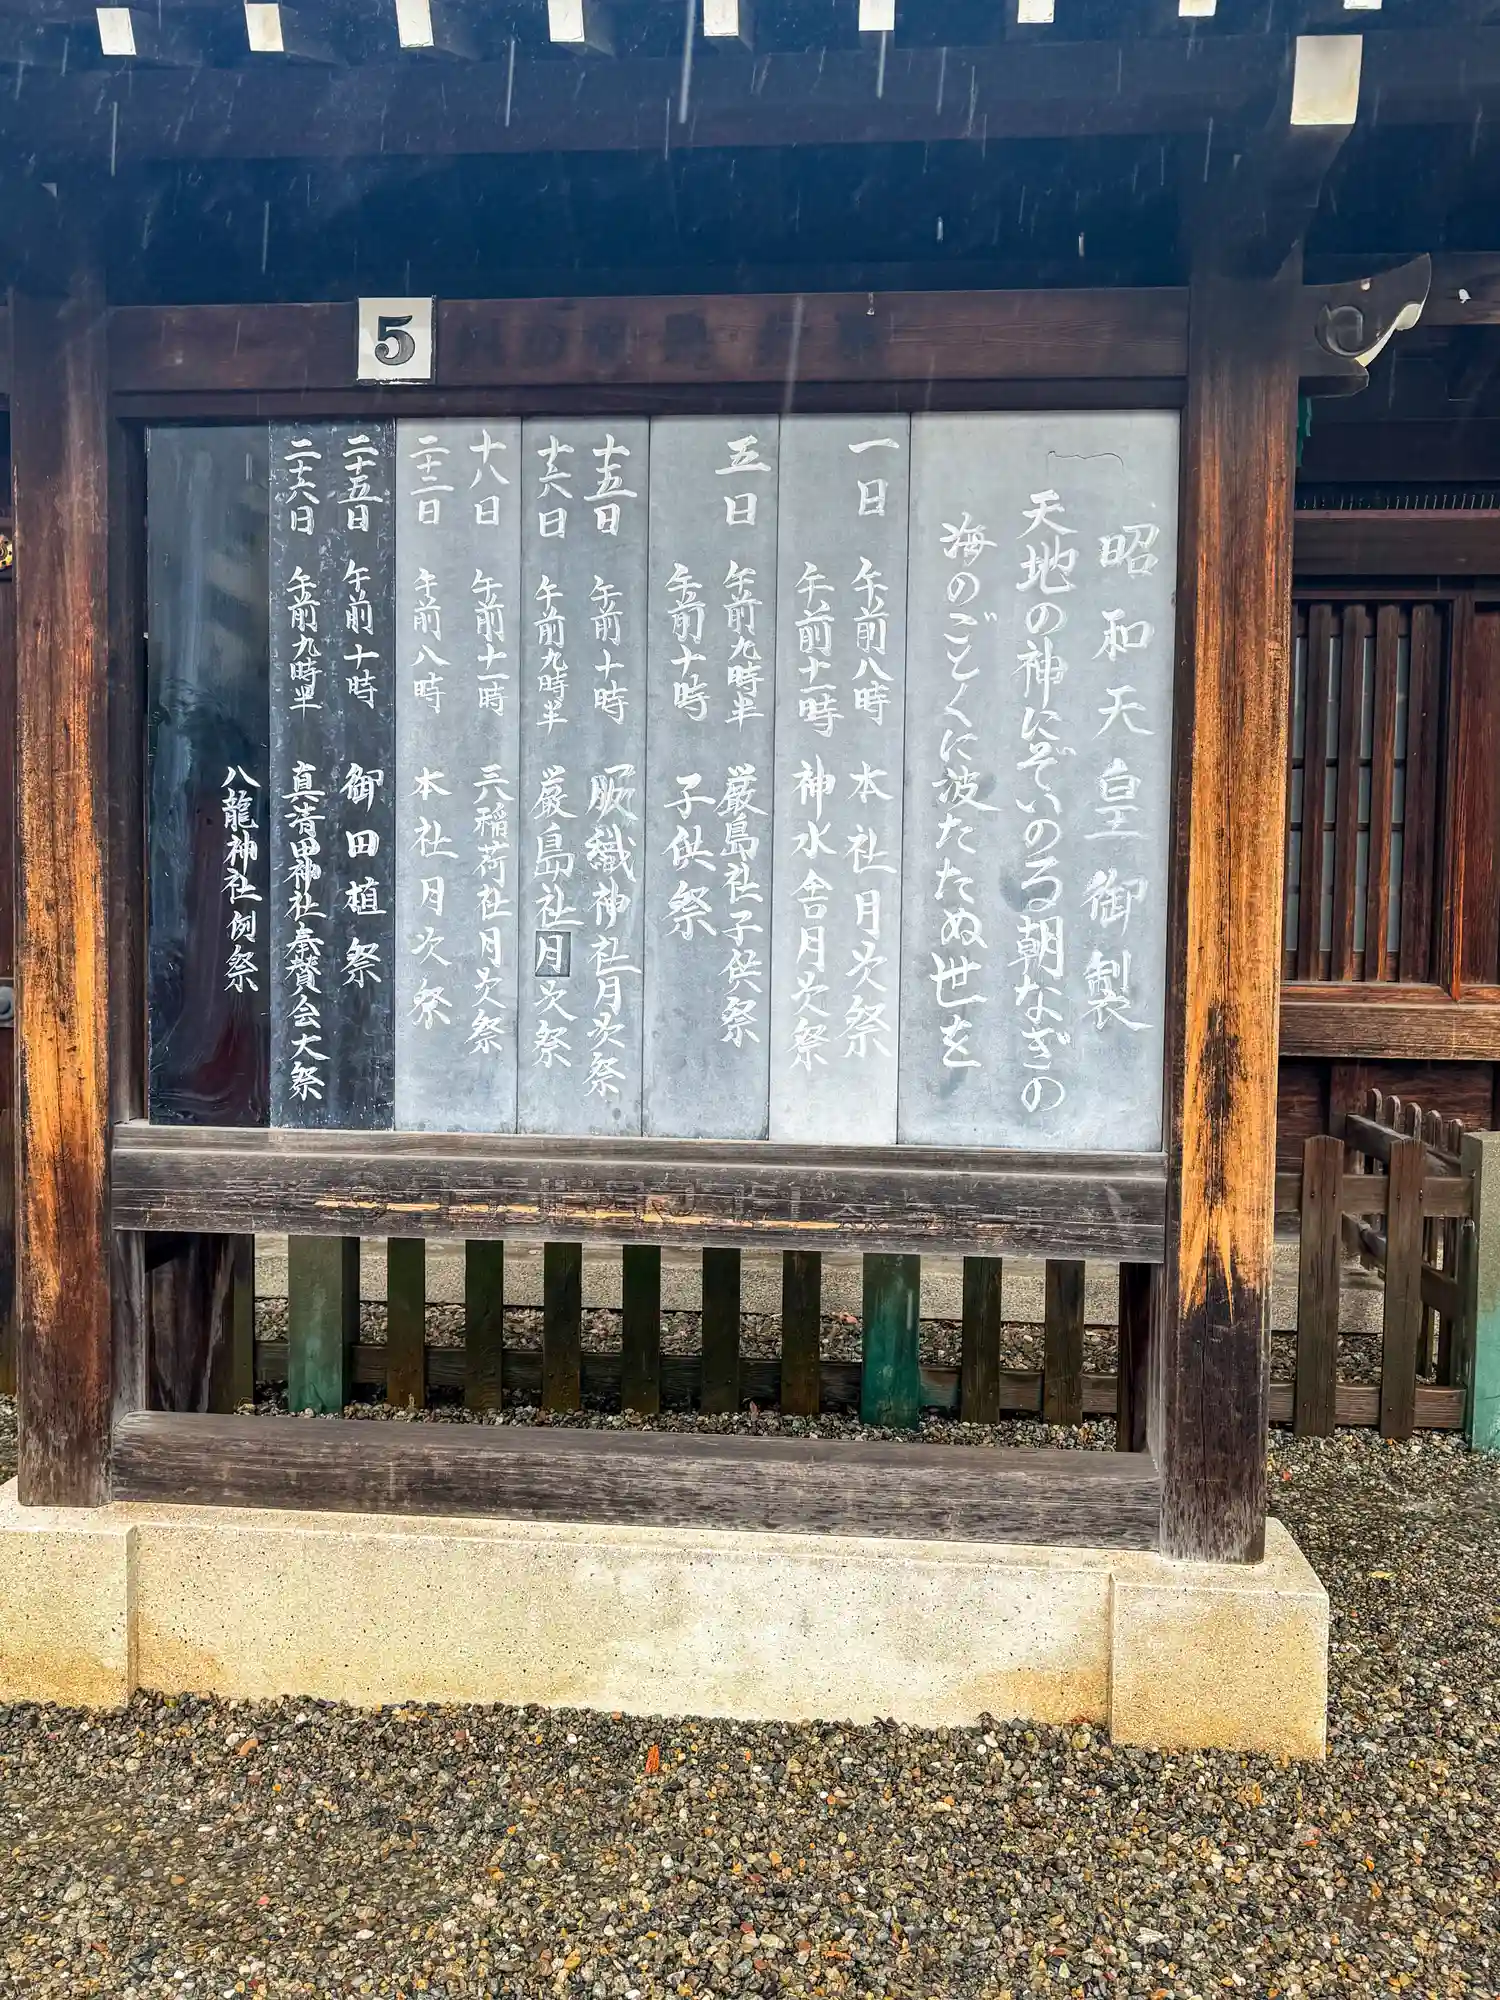 5
昭和天皇御製
天地の神にぞいのる朝なぎの
海のごとくに波たたぬ世を
一日 午前八時 本社月次祭
午前十一時 神水舎月次祭
五日 午前九時半 厳島社子供祭
午前十時 子供祭
十五日 午前十時 服織神社月次祭
十六日 午前九時半 厳島社月次祭
十八日 午前十一時 三稲荷社月次祭
二十二日 午前八時 本社月次祭
二十五日 午前十時 御田植祭
二十六日 午前九時半 真清田神社奉賛会大祭
八龍神社例祭